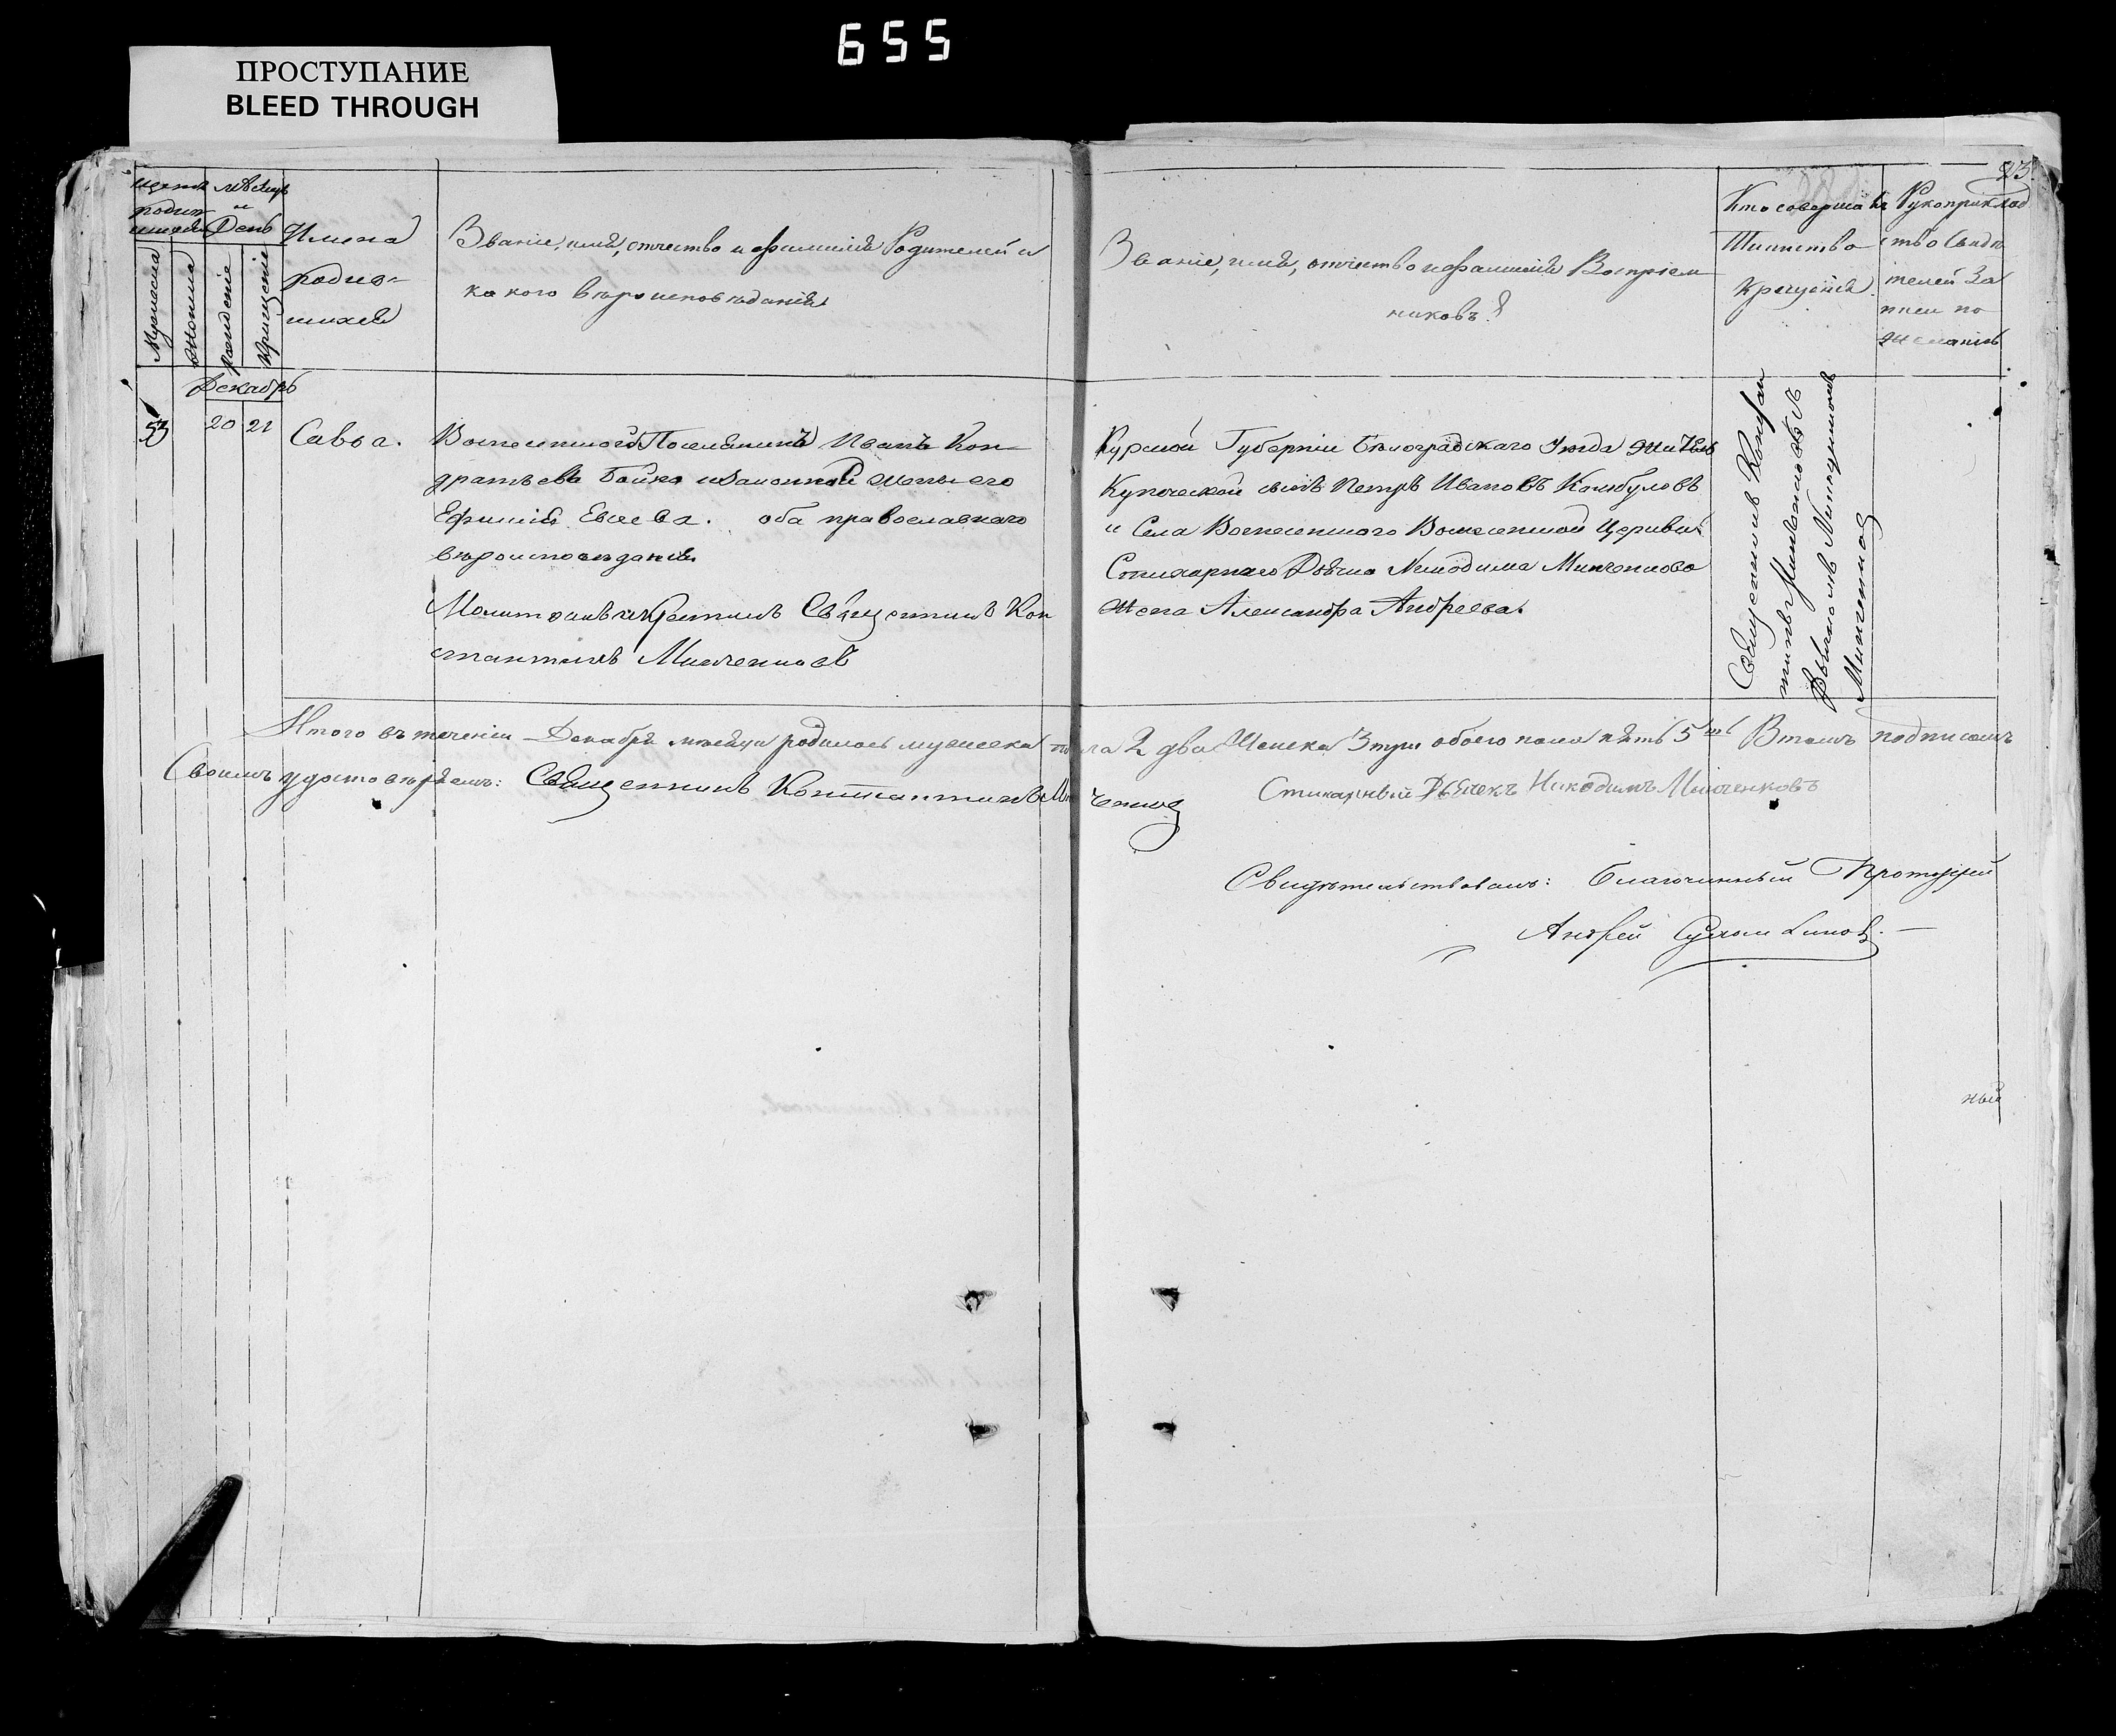 655
ПРОСТУПАНИЕ
BLEED THROUGH
23.
Имена
родив-
шихся
Званіе, имя, отчество и фамилія Родителей и
какого вѣроисповѣданія
Званіе, имя, отчество и фамилія Воспріем
никовъ
Кто совершалъ
Таинство
крещенія
Рукоприклад
ство Свидѣ
телей За
писи по
желанію
Мужеска
Женска
рожденіе
крещеніе
Декабрь
53
20 21
Савва.
Вознесенскій Поселянинъ Иванъ Кон-
дратьевъ Бойко и законная жена его
Ефимія Евсеева. оба православнаго
вѣроисповѣданія
Молитвовалъ и крестилъ Священникъ Кон
стантинъ Минченковъ
Курской Губерніи Бѣлоградскаго Уезда житель
Купеческой сынъ Петръ Ивановъ
и Села Вознесенскаго Вознесенской Церкви
Стихарнаго Дьячка Никодима Минченкова
жена Александра Андреева.
Священникъ Констан
тинъ Минченковъ съ
Дьячкомъ Никодимомъ
Минченковымъ
Итого въ теченіи Декабря мѣсяца родилось мужеска пола 2 два Женска 3 три обоего пола пять 5ть В томъ подписомъ
Своимъ удостовѣряемъ: Священникъ Константинъ Минченковъ
Стихарный Дьячекъ Никодимъ Минченковъ
Свидѣтельствовалъ: Благочинный Протоіерей
Андрей
ный